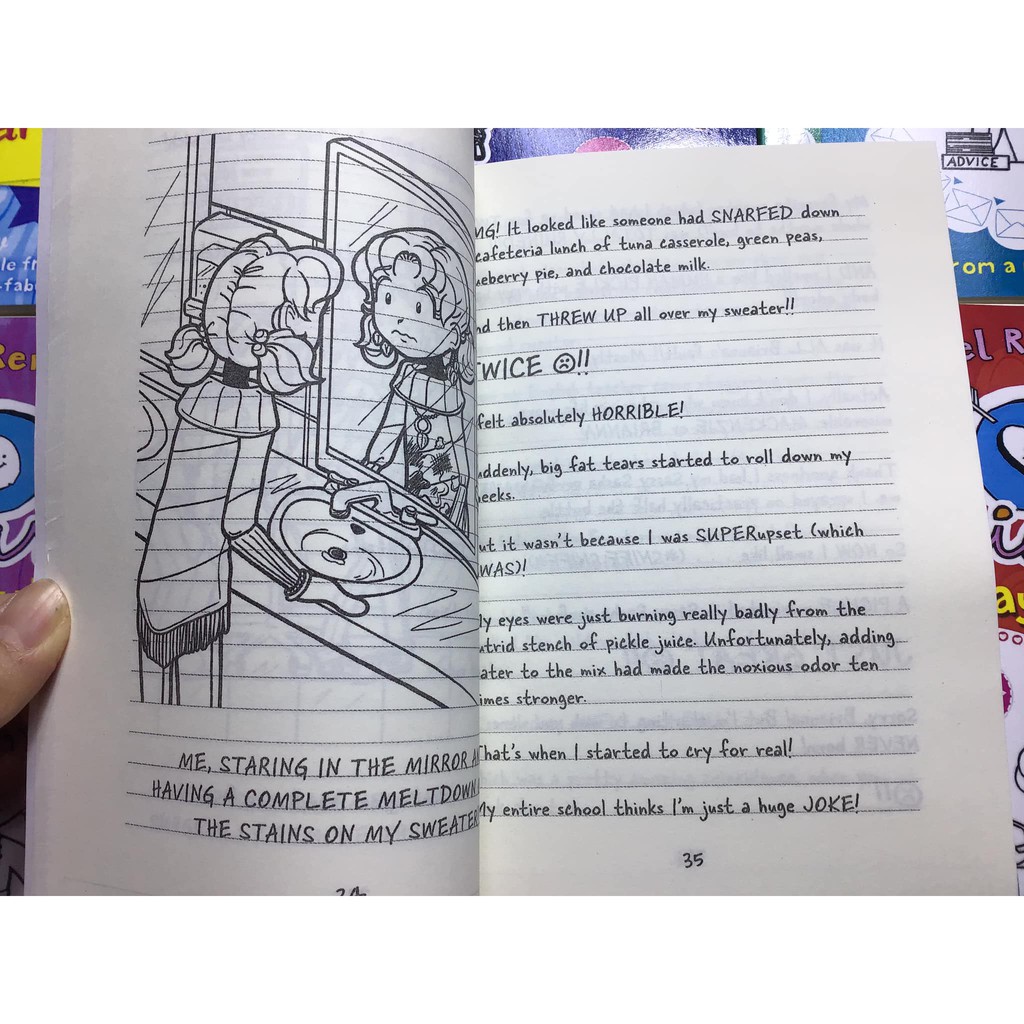 ME, STARING IN THE MIRROR
HAVING A COMPLETE MELTDOWN
THE STAINS ON MY SWEATER
MG! It looked like someone had SNARFED down
cafeteria lunch of tuna casserole, green peas,
ueberry pie, and chocolate milk.
nd then THREW UP all over my sweater!!
WICE ☹!!
felt absolutely HORRIBLE!
uddenly, big fat tears started to roll down my
eeks.
ut it wasn't because I was SUPERupset (which
WAS)!
ly eyes were just burning really badly from the
utrid stench of pickle juice. Unfortunately, adding
ater to the mix had made the noxious odor ten
imes stronger.
That's when I started to cry for real!
My entire school thinks I'm just a huge JOKE!
35
ADVICE
rom a
el R
Ren
le fr
-fab